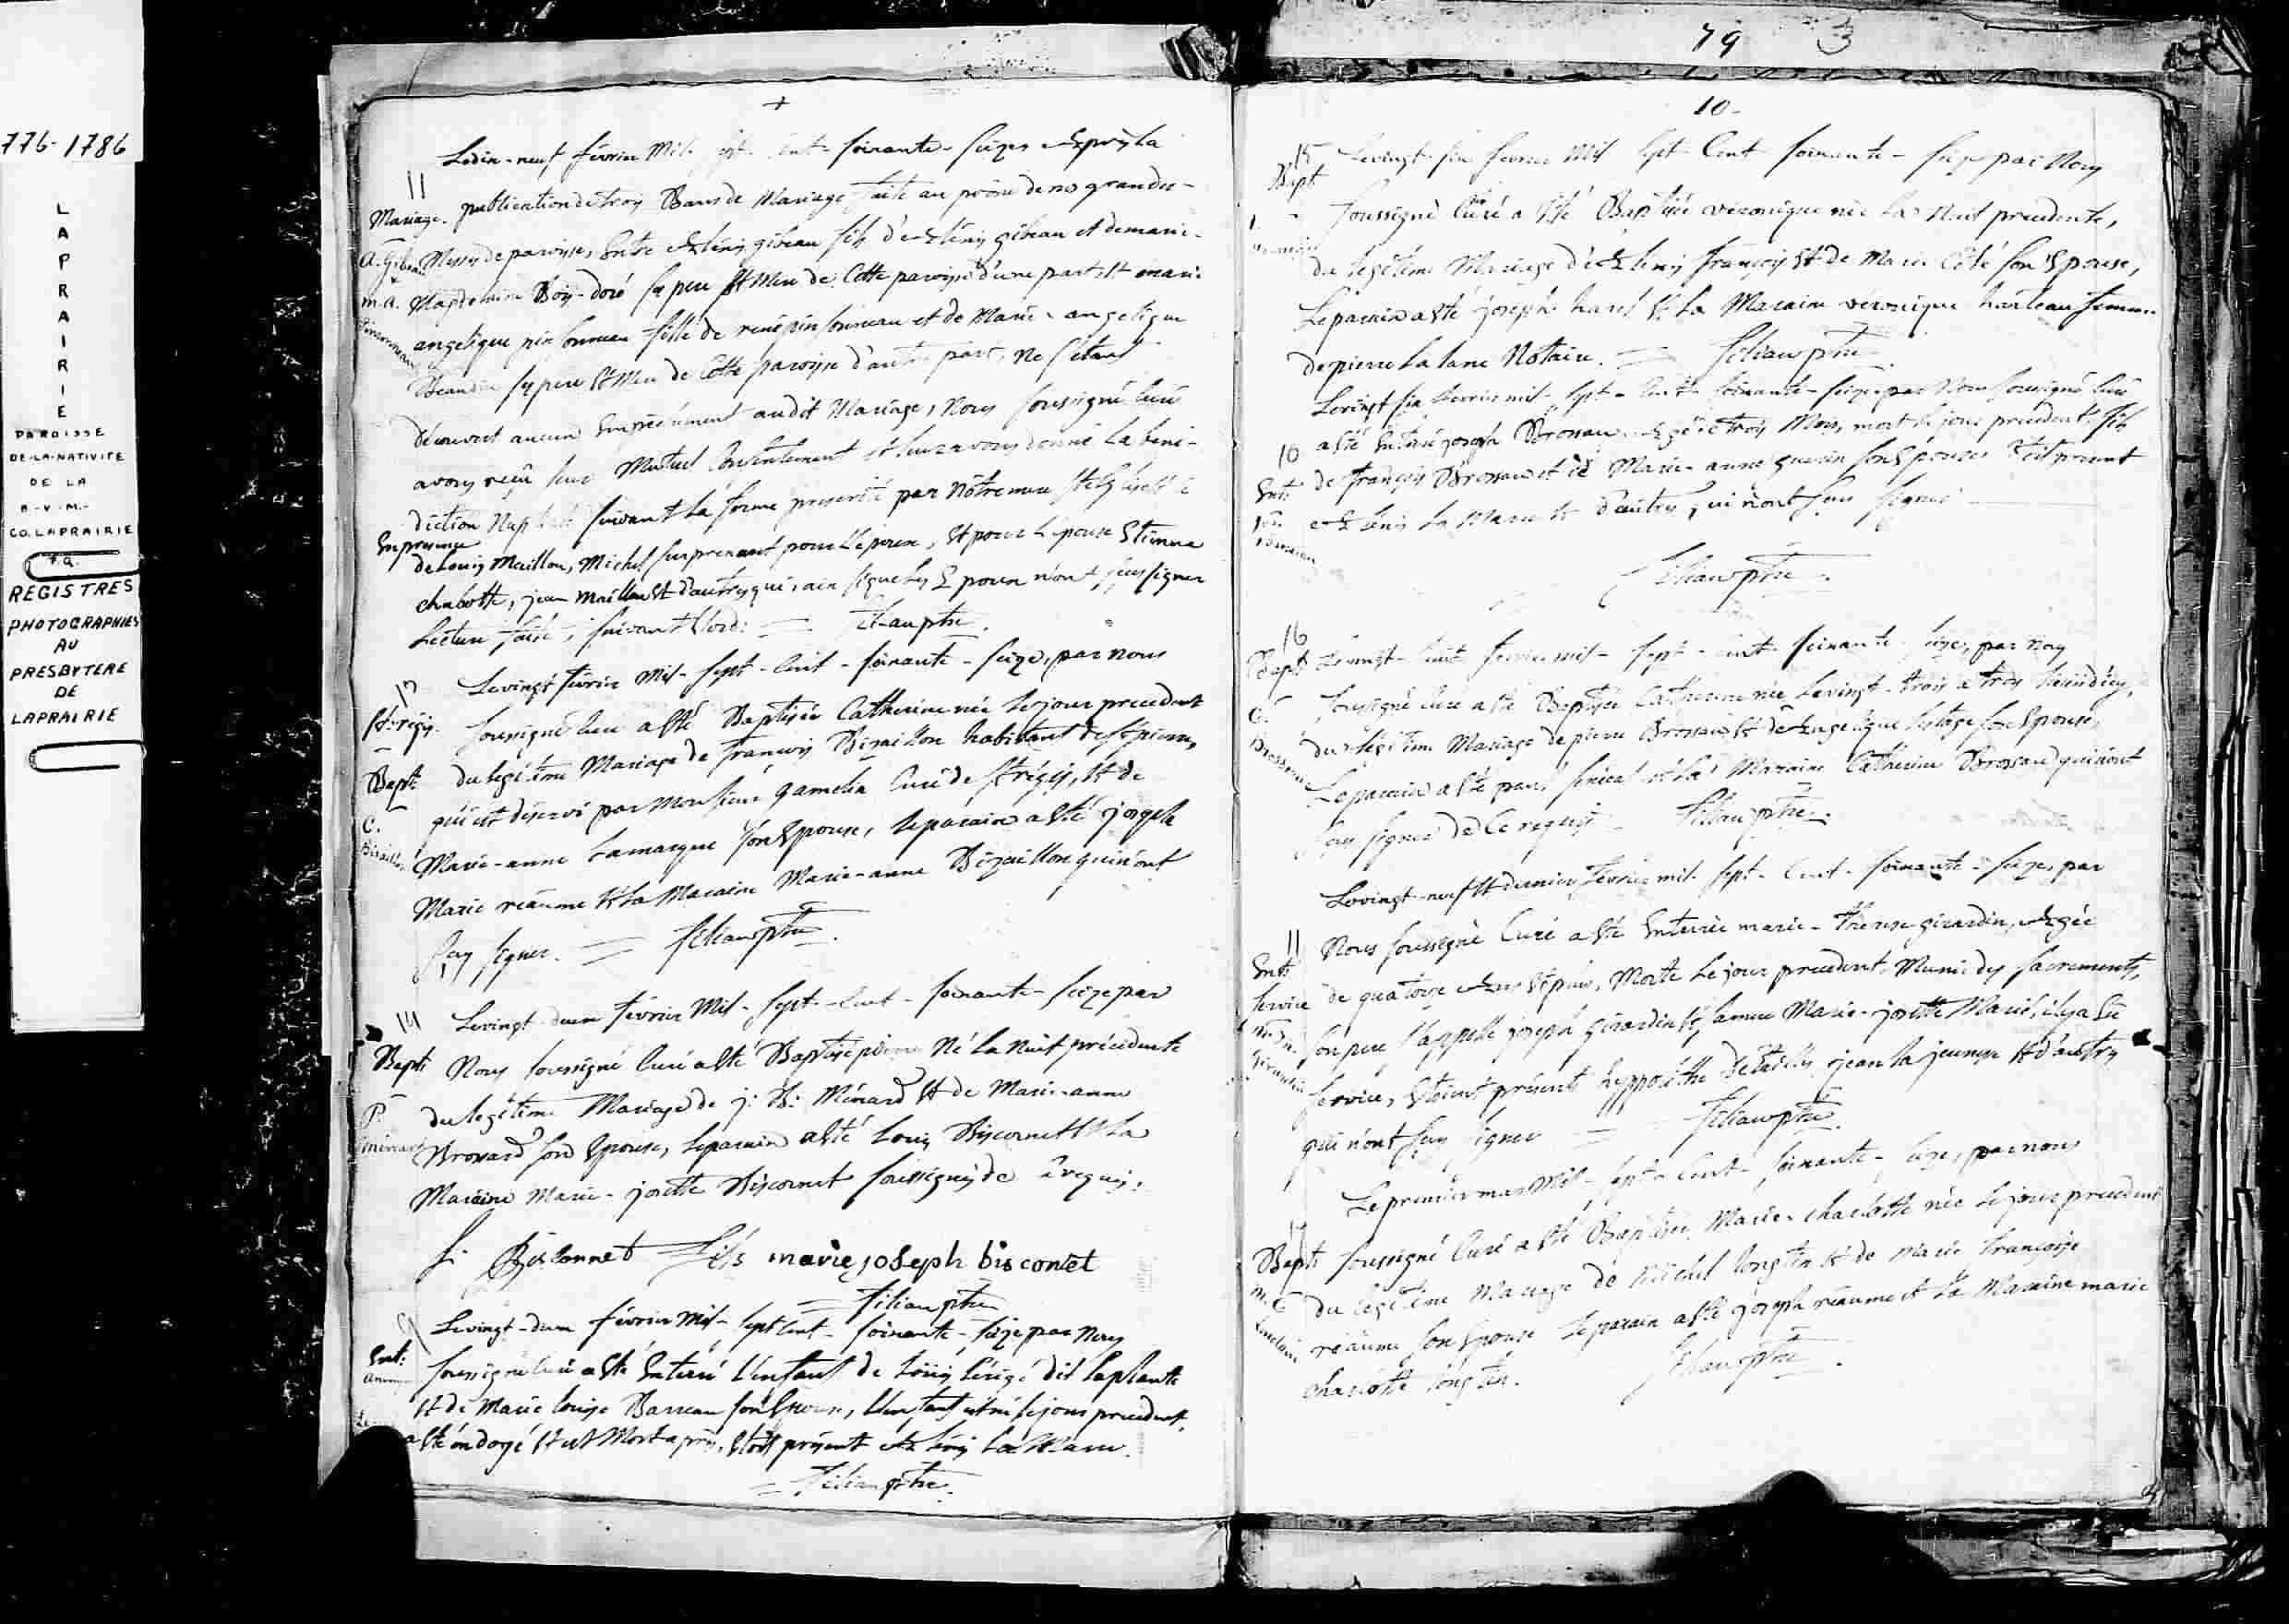 776-1786
LAPRAIRIE
PAROISSE
DE-LA-NATIVITE
DE LA
B-V-M-
CO. LAPRAIRIE
P.Q.
REGISTRES
PHOTOGRAPHIES
AU
PRESBYTERE
DE
LAPRAIRIE
Ledix-neuf février Mil- sept- Cent- soixante- seizes Aprèsla
11
Mariage. publication detroys Bans de Mariage faite au prône de nos grandes-
A. Gibeau Messes de paroisse, Entre Antoine gibeau fils d'Antoine gibeau et demarie-
m.a. Magdeleine Boy-doré père Et Mere de Cette paroisse d'une part, Et marie
pinsonneau angelique pinsonneau fille de rené pinsonneau et de Marie-angelique
Beaudin père Et Mere de Cette paroisse d'autre part, ne s'étant
découvert aucun Empêchement audit Mariage, Nous soussigné Curé
avons reçu leur Mutuel Consentement et leur avons donné La béné-
diction Nuptiale suivant La forme prescrite par Nôtre mere Ste Eglise
En presence
de Louis Maillou, Michel surprenant pour L'epoux, Et pour L'epouse Etienne
chabotte, jean Maillou Et d'autres qui, n'ont sçeu signer
Lecture faite, suivant L'ord: = filiau ptre.
Levingt février Mil- Sept- Cent- soixante- seize, par nous
St. régis. soussigné Curé a Eté Baptisée Catherine née Le jour precedent
Bapt: du legitime Mariage de françois Bizaillon habitant de St pierre,
qui est déservi par Monsieur gamelin Curé de St régis, Et de
C.
Bizaillon Marie-anne Lamarque son Epouse, Leparain a Eté joseph
Marie reaume Et La Maraine Marie-anne Bizaillon qui n'ont
sçu signer. = filiau ptre.
14 Levingt-deux février Mil- Sept- Cent- soixante- seize par
Bapt: Nous soussigné Curé a Eté Baptisé pierre Né La nuit précédente
P. du legitime Mariage de j: B: Ménard Et de Marie-anne
ménard Brossard son Epouse, Leparain a Eté Louis Biscornet Et La
Maraine Marie-josette Biscornet soussignés de ce requis.
L: Biscornnet fils marie joseph bisconet
= filiau ptre
9 Levingt-deux février Mil- Sept Cent- soixante- seize par Nous
Ent: soussigné Curé a Eté Enterré L'enfant de Louis Lériger dit Laplante
anonyme Et de Marie Louise Barreau son Epouse, L'enfant est né le jour precedent
a Eté ondoyé Et est Mort après, Etoit présent Antoine La Marre.
= filiau ptre.
79 3
10-
15 Levingt-six fevrier Mil Sept Cent soixante- seize par Nous
Bapt soussigné Curé a Eté Baptisée veronique née La Nuit precedente,
du legitime Mariage d'Antoine françois Et de Marie Côté son Epouse,
Leparain a Eté joseph harel Et La Maraine veronique harteau femme
depierre Lalane Notaire. = filiau ptre
Levingt six fevrier mil- Sept- Cent- soixante- seize par Nous soussigné Curé
10 a Eté Enterré joseph Brossau Agé de trois Mois, mort le jour precedent fils
Ent: de françois Brossau et de Marie-anne guerin son Epouse Etoit present
jos. Antoine La Marre Et d'autres, qui n'ont sçeu signer
Brosseau
filiau ptre.
16
Bapt Levingt-huit fevrier mil- Sept- Cent- soixante- seize, par Nous
C. soussigné Curé a Eté Baptisée Catherine née Levingt-trois
Brosseau du legitime Mariage de pierre Brossau Et d'Angelique Lestage son Epouse,
Leparain a Eté paul senécal et La Maraine Catherine Brossard qui n'ont
sçu signer de Ce requis = filiau ptre.
Levingt-neuf Et dernier février mil- Sept- Cent- soixante- seize, par
11 Nous soussigné Curé a Eté Enterrée marie-therese girardin, Agée
Ent: de quatorze Ans Et plus, Morte Le jour precedent Munie des sacrements,
service
m. th. son pere s'appelle joseph girardin Et sa mere Marie-josette Marie, il y a Eu
girardin service, Etoient présent jean La jeunesse Et d'autres
qui n'ont sçu signer = filiau ptre.
Le premier mars Mil- Sept- Cent- soixante- seize, par nous
17
Bapt: soussigné Curé a Eté Baptisée Marie-charlotte née Le jour precedent
m. C du legitime Mariage de Michel longtin Et de Marie françoise
reaume son Epouse Leparain a Eté joseph reaume et La Maraine marie
charlotte longtin. filiau ptre.